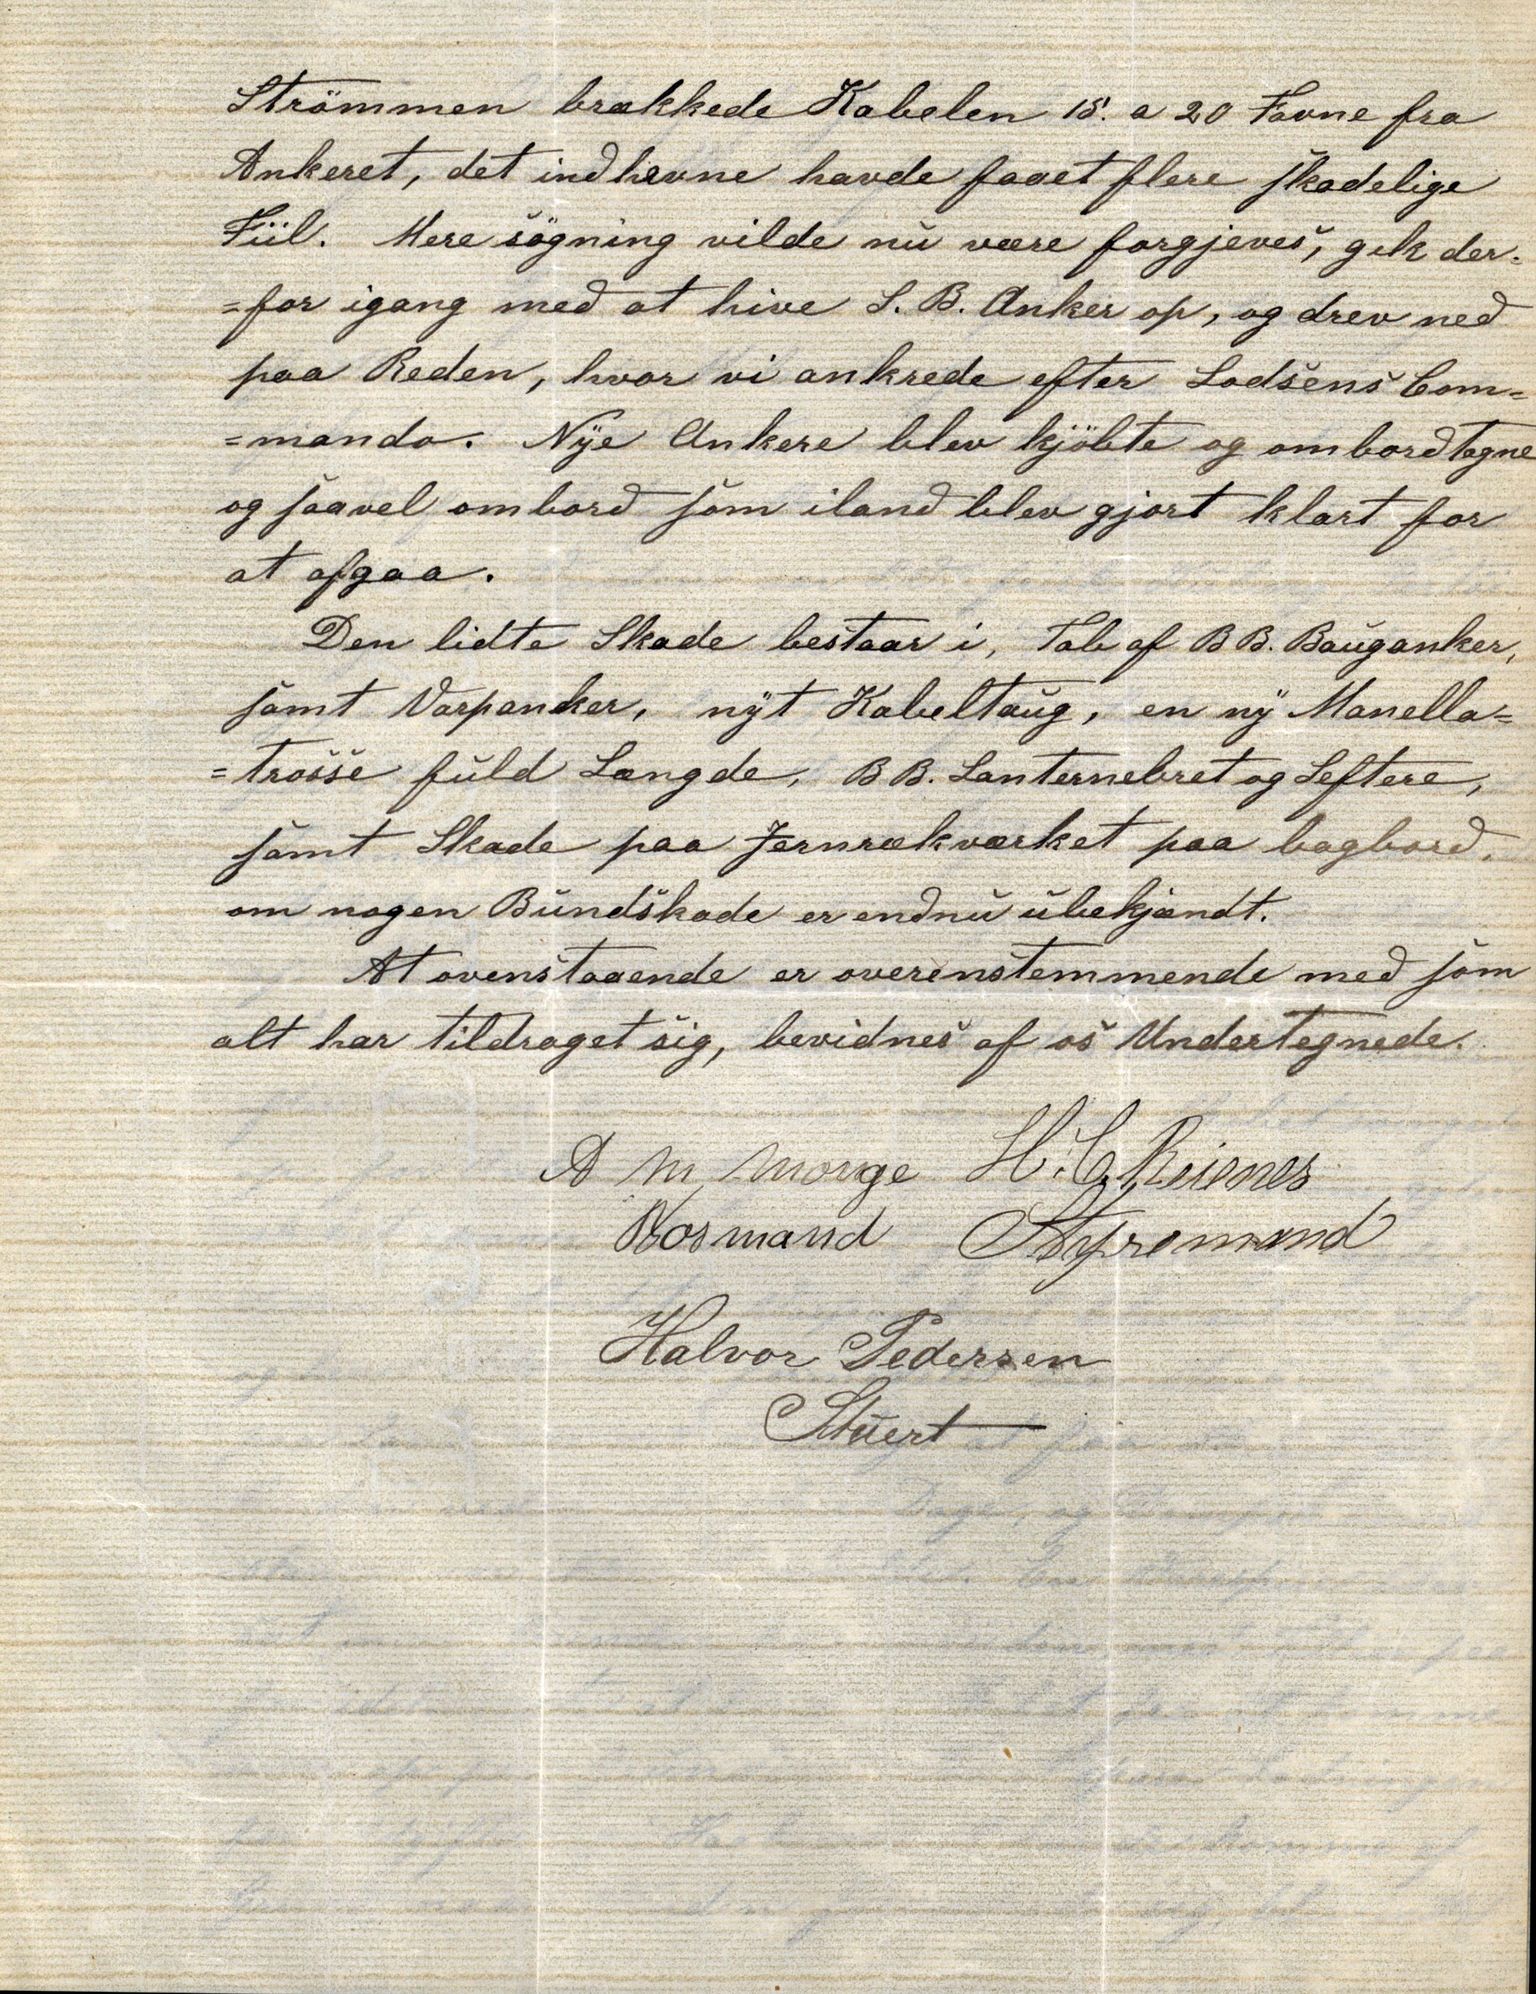 Strömmen brækkede Kabelen 15. a 20 Favne fra
Ankeret, det indhevne havde faaet flere skadelige
Fiil. Mere søgning vilde nu være forgjeves, gik der=
=for igang med at hive S. B. Anker op, og drev ned
paa Reden, hvor vi ankrede efter Lodsens Com=
=mando. Nÿe Ankere blev kjöbte og ombordtagne
og saavel ombord som iland blev gjort klart for
at afgaa.
Den lidte Skade bestaar i, Tab af B B. Bauganker,
samt Varpanker, nÿt Kabeltaug, en nÿ Manella=
=trosse fuld Længde, B B. Lanternebret og Leftere,
samt Skade paa Jernrækværket paa bagbord.
om nogen Bundskade er endnu ubekjændt.
At ovenstaaende er overenstemmende med som
alt har tildraget sig, bevidnes af os Undertegnede.
A M H. C. Reisnes
Styremand
Halvor Pedersen
Stuert